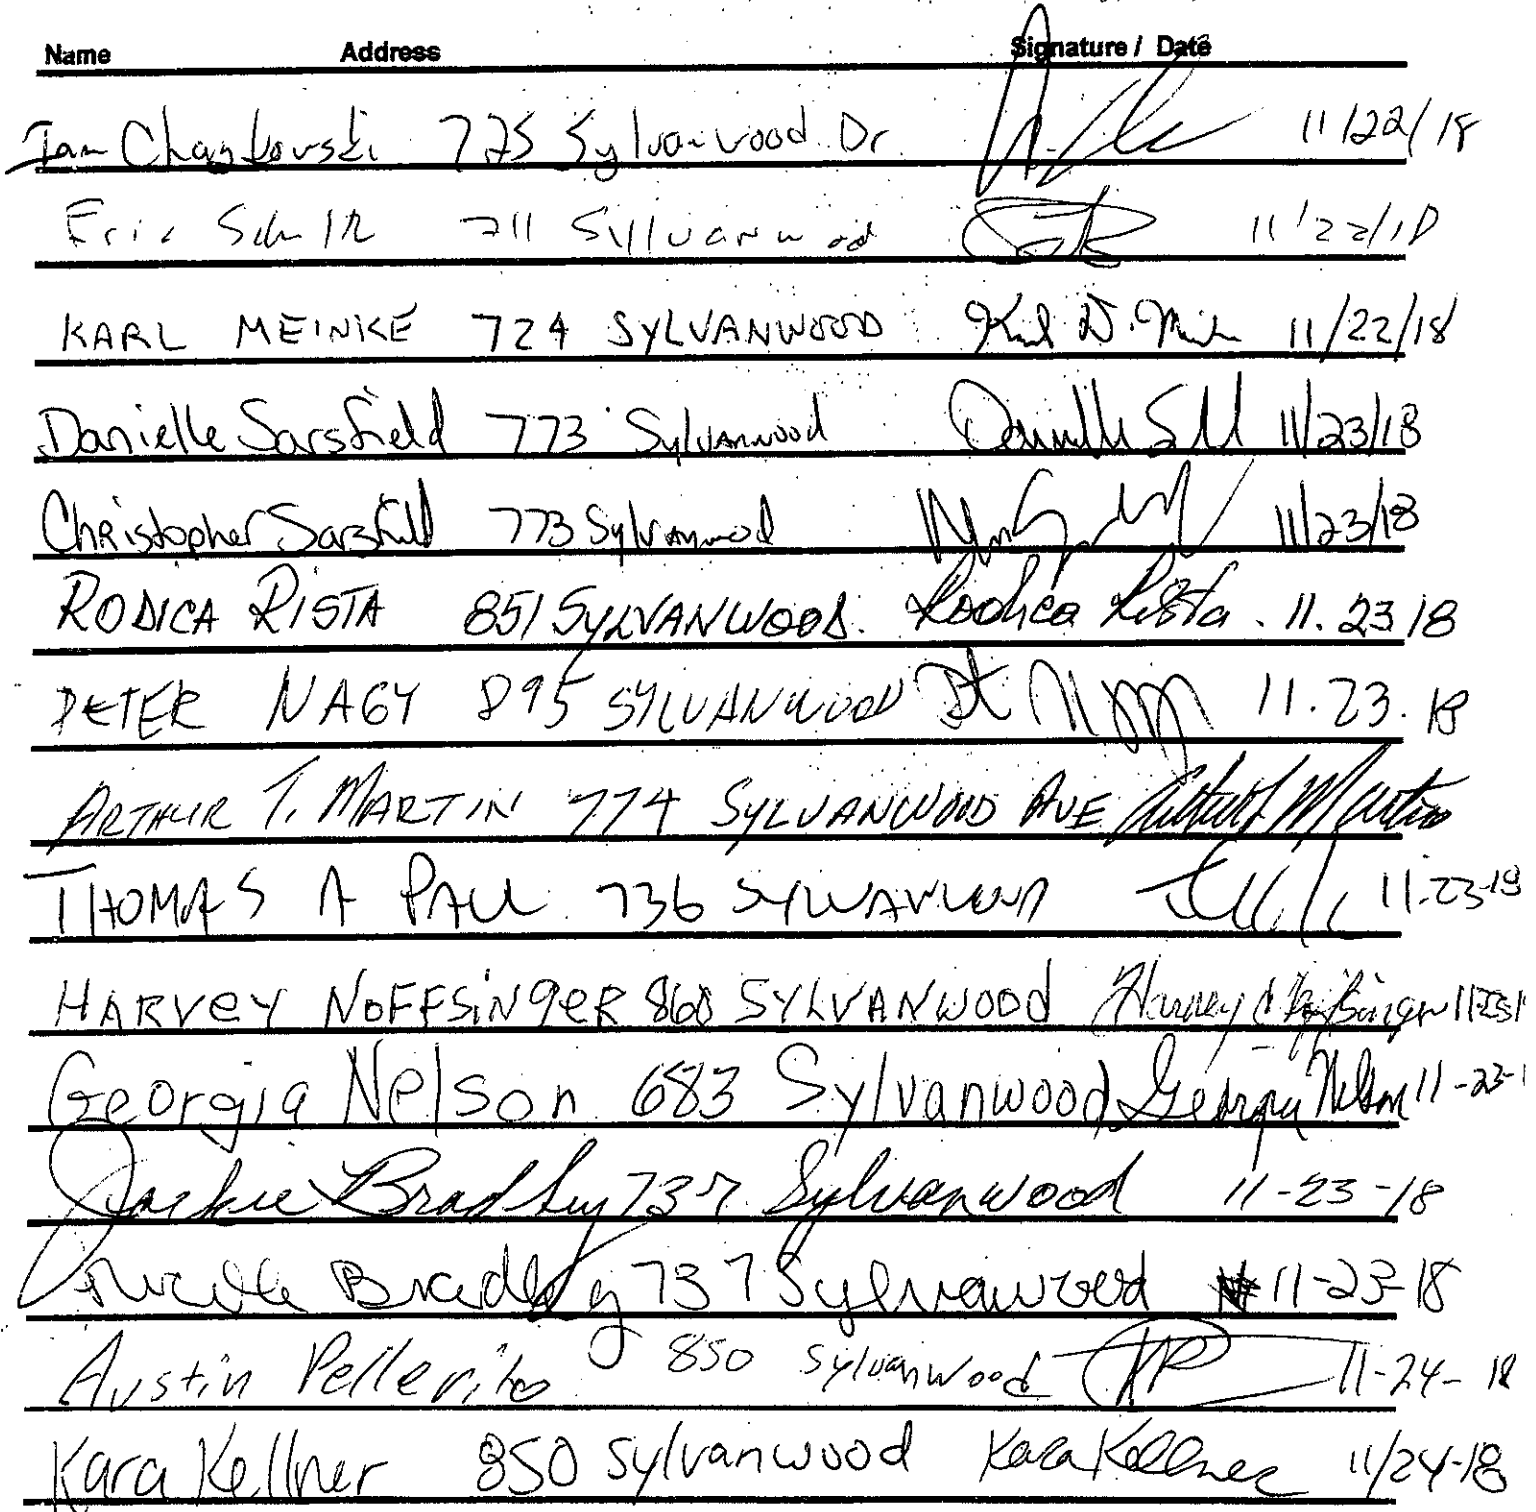 Name Address Signature / Date
Ian 725 Sylvanwood Dr 11/22/18
Eric 711 Sylluanwood 11/22/18
KARL MEINKE 724 SYLVANWOOD Karl D. 11/22/18
Danielle Sarsfield 773 Sylvanwood 11/23/18
Christopher Sarsfield 773 Sylvanwood 11/23/18
RODICA RISTA 851 SYLVANWOOD. Rodica Rista. 11.23.18
PETER NAGY 895 SYLVANWOOD 11.23.18
ARTHUR T. MARTIN 774 SYLVANWOOD AVE Arthur T Martin
THOMAS A PAUL 736 SYLVANWOOD 11-23-18
HARVEY NOFFSINGER SYLVANWOOD Harvey Noffsinger
Georgia Nelson 683 Sylvanwood Georgia Nelson 11-23-1
Jackie Bradley 737 Sylvanwood 11-23-18
Bradley 737 Sylvanwood 11-23-18
Austin Pellerito 850 Sylvanwood AP 11-24-18
Kara Kellner 850 Sylvanwood Kara Kellner 11/24-18